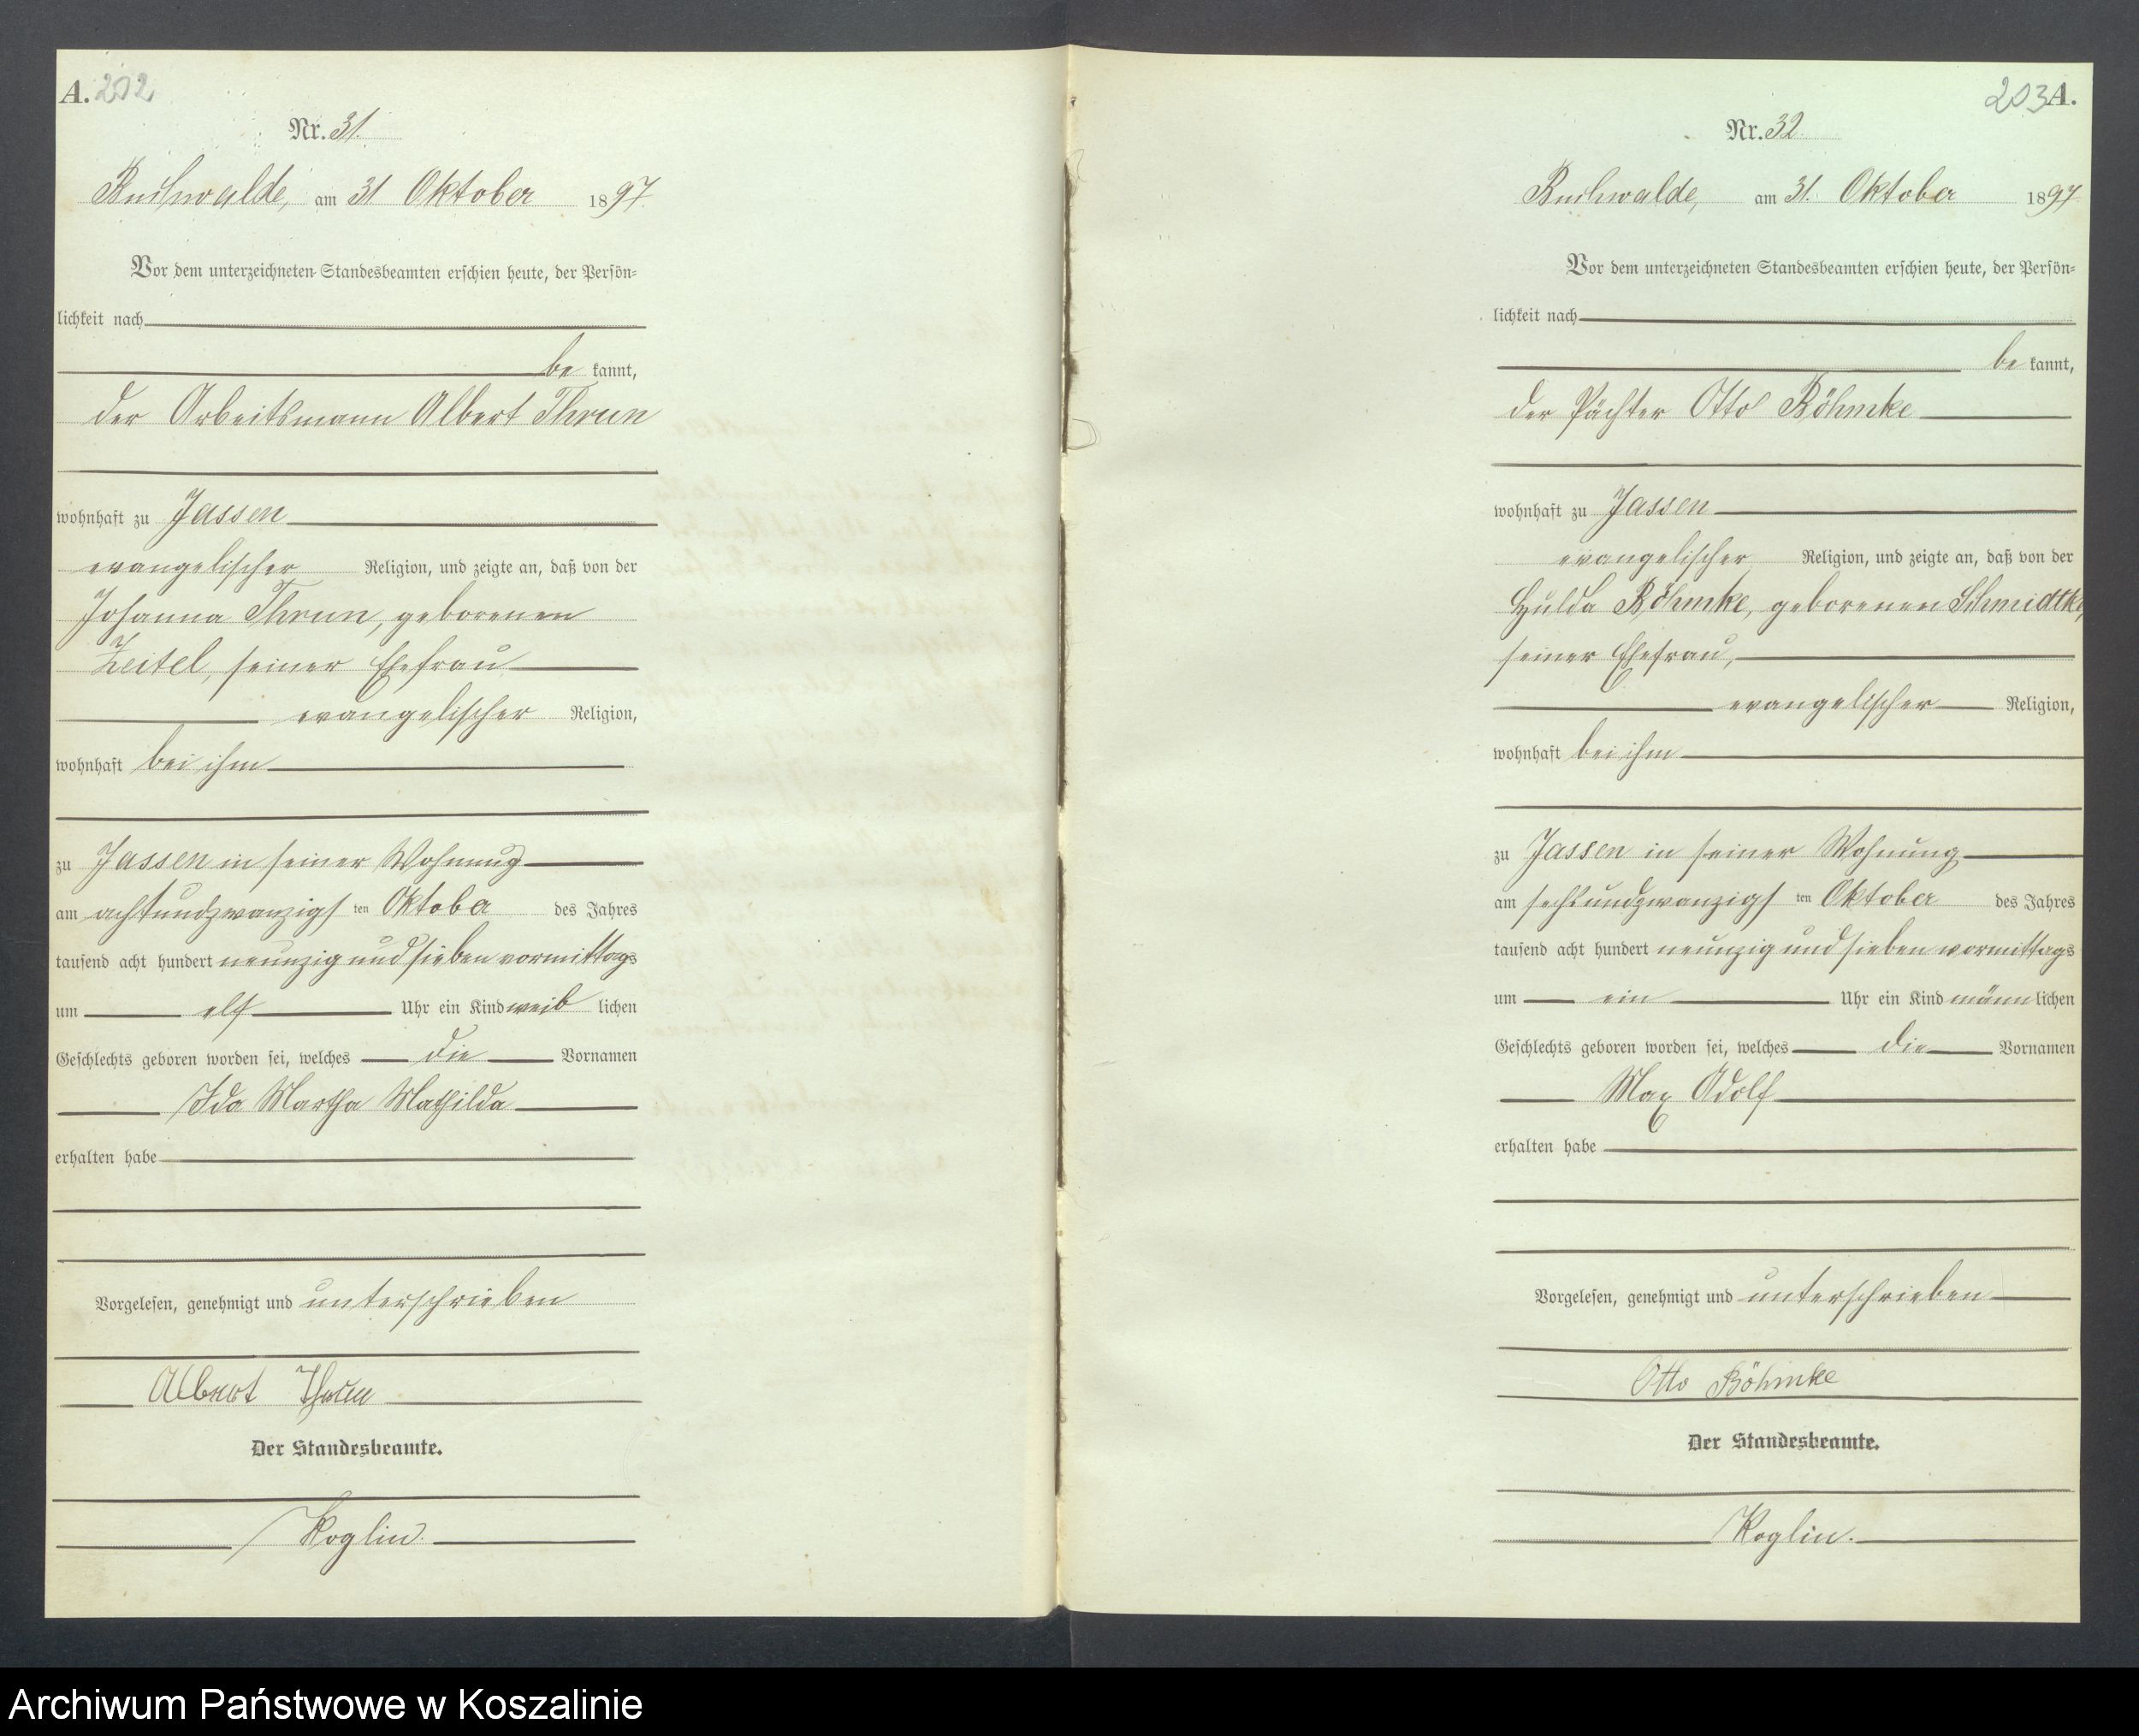 A. 202
Nr. 31.
Buchwalde, am 31 Oktober 1897.
Vor dem unterzeichneten Standesbeamten erschien heute, der Persön=
lichkeit nach
be kannt,
der Arbeitsmann Albert Thrun
wohnhaft zu Jassen
evangelischer Religion, und zeigte an, daß von der
Johanna Thrun, geborenen
Zeitel, seiner Ehefrau
evangelischer Religion,
wohnhaft bei ihm
zu Jassen in seiner Wohnung
am achtundzwanzigs ten Oktober des Jahres
tausend acht hundert neunzig und sieben vormittags
um elf Uhr ein Kind weib lichen
Geschlechts geboren worden sei, welches die Vornamen
Ida Martha Mathilda
erhalten habe
Vorgelesen, genehmigt und unterschrieben
Albert Thrun
Der Standesbeamte.
Koglin.
203 A.
Nr. 32.
Buchwalde, am 31. Oktober 1897.
Vor dem unterzeichneten Standesbeamten erschien heute, der Persön=
lichkeit nach
be kannt,
der Pächter Otto Böhmke
wohnhaft zu Jassen
evangelischer Religion, und zeigte an, daß von der
Hulda Böhmke, geborenen Schmidtke,
seiner Ehefrau,
evangelischer Religion,
wohnhaft bei ihm
zu Jassen in seiner Wohnung
am sechsundzwanzigs ten Oktober des Jahres
tausend acht hundert neunzig und sieben vormittags
um ein Uhr ein Kind männ lichen
Geschlechts geboren worden sei, welches die Vornamen
Max Adolf
erhalten habe
Vorgelesen, genehmigt und unterschrieben
Otto Böhmke
Der Standesbeamte.
Koglin.
Archiwum Państwowe w Koszalinie